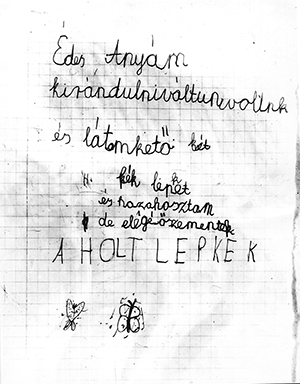 Édes Anyám
kirándulniváltunkvoltunk
és látomkető két
kék lepkét
és hazahosztam
de elégőszementek
A HOLT LEPKÉK